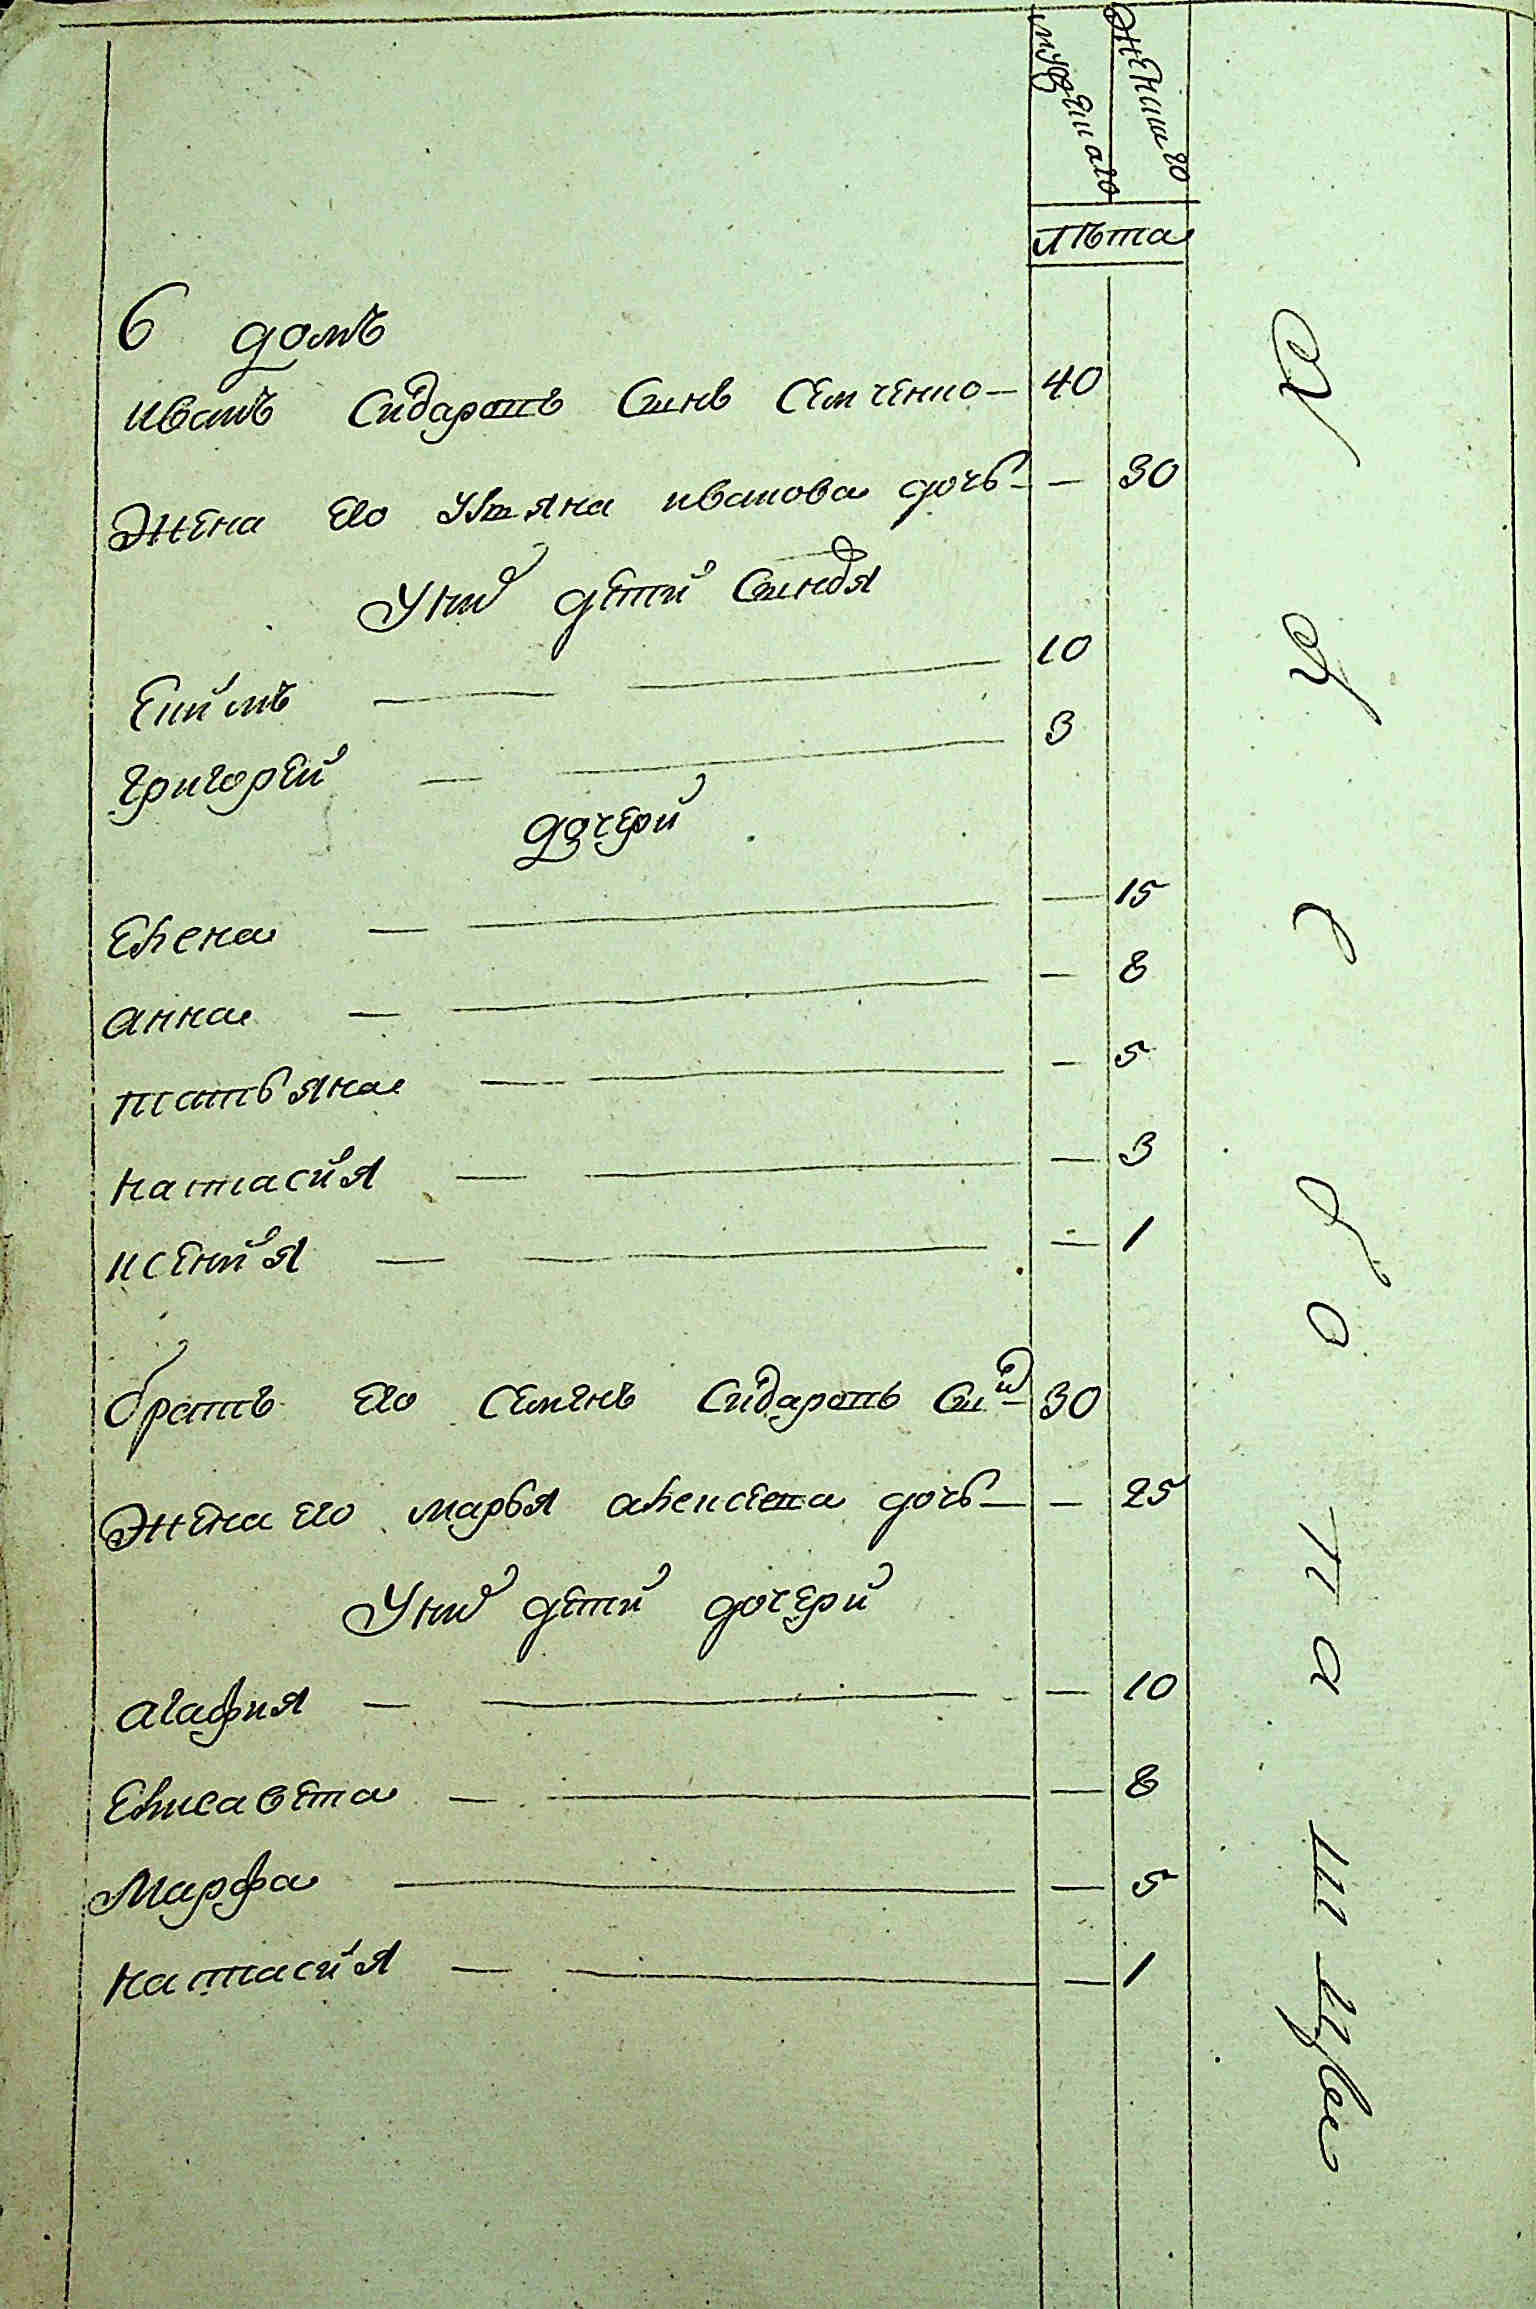 мужеска го
женска го
лѣта
6 домъ
иванъ Сидаровъ Синъ Семченко — 40
жена его Уляна иванова дочь — — 30
У них дети Синовя
Екимъ — — 10
григорей — — 3
дочери
елена — — — 15
анна — — — 8
татьяна — — — 5
настасия — — — 3
ксения — — — 1
братъ его Семенъ Сидаровъ Син — 30
жена его марья алексеева дочь — — 25
У них дети дочери
агафия — — — 10
елисавета — — — 8
Марфа — — 5
настасия — — — 1